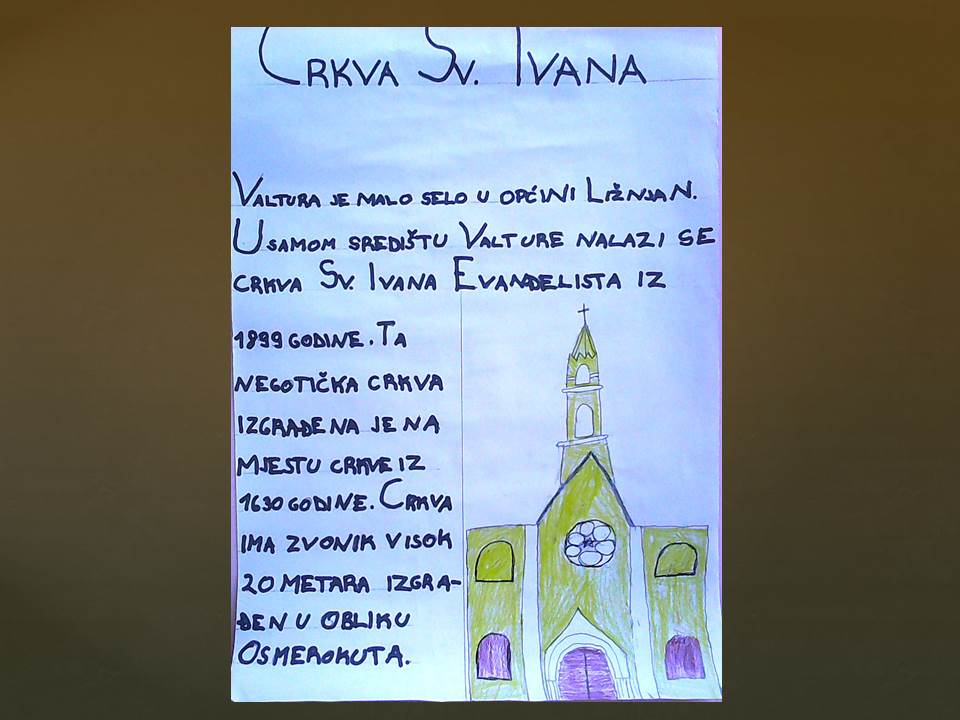 CRKVA SV. IVANA
VALTURA JE MALO SELO U OPĆINI LIŽNJAN.
U SAMOM SREDIŠTU VALTURE NALAZI SE
CRKVA SV. IVANA EVANĐELISTA IZ
1899 GODINE. TA
NEGOTIČKA CRKVA
IZGRAĐENA JE NA
MJESTU CRKVE IZ
1630 GODINE. CRKVA
IMA ZVONIK VISOK
20 METARA IZGRA-
ĐEN U OBLIKU
OSMEROKUTA.